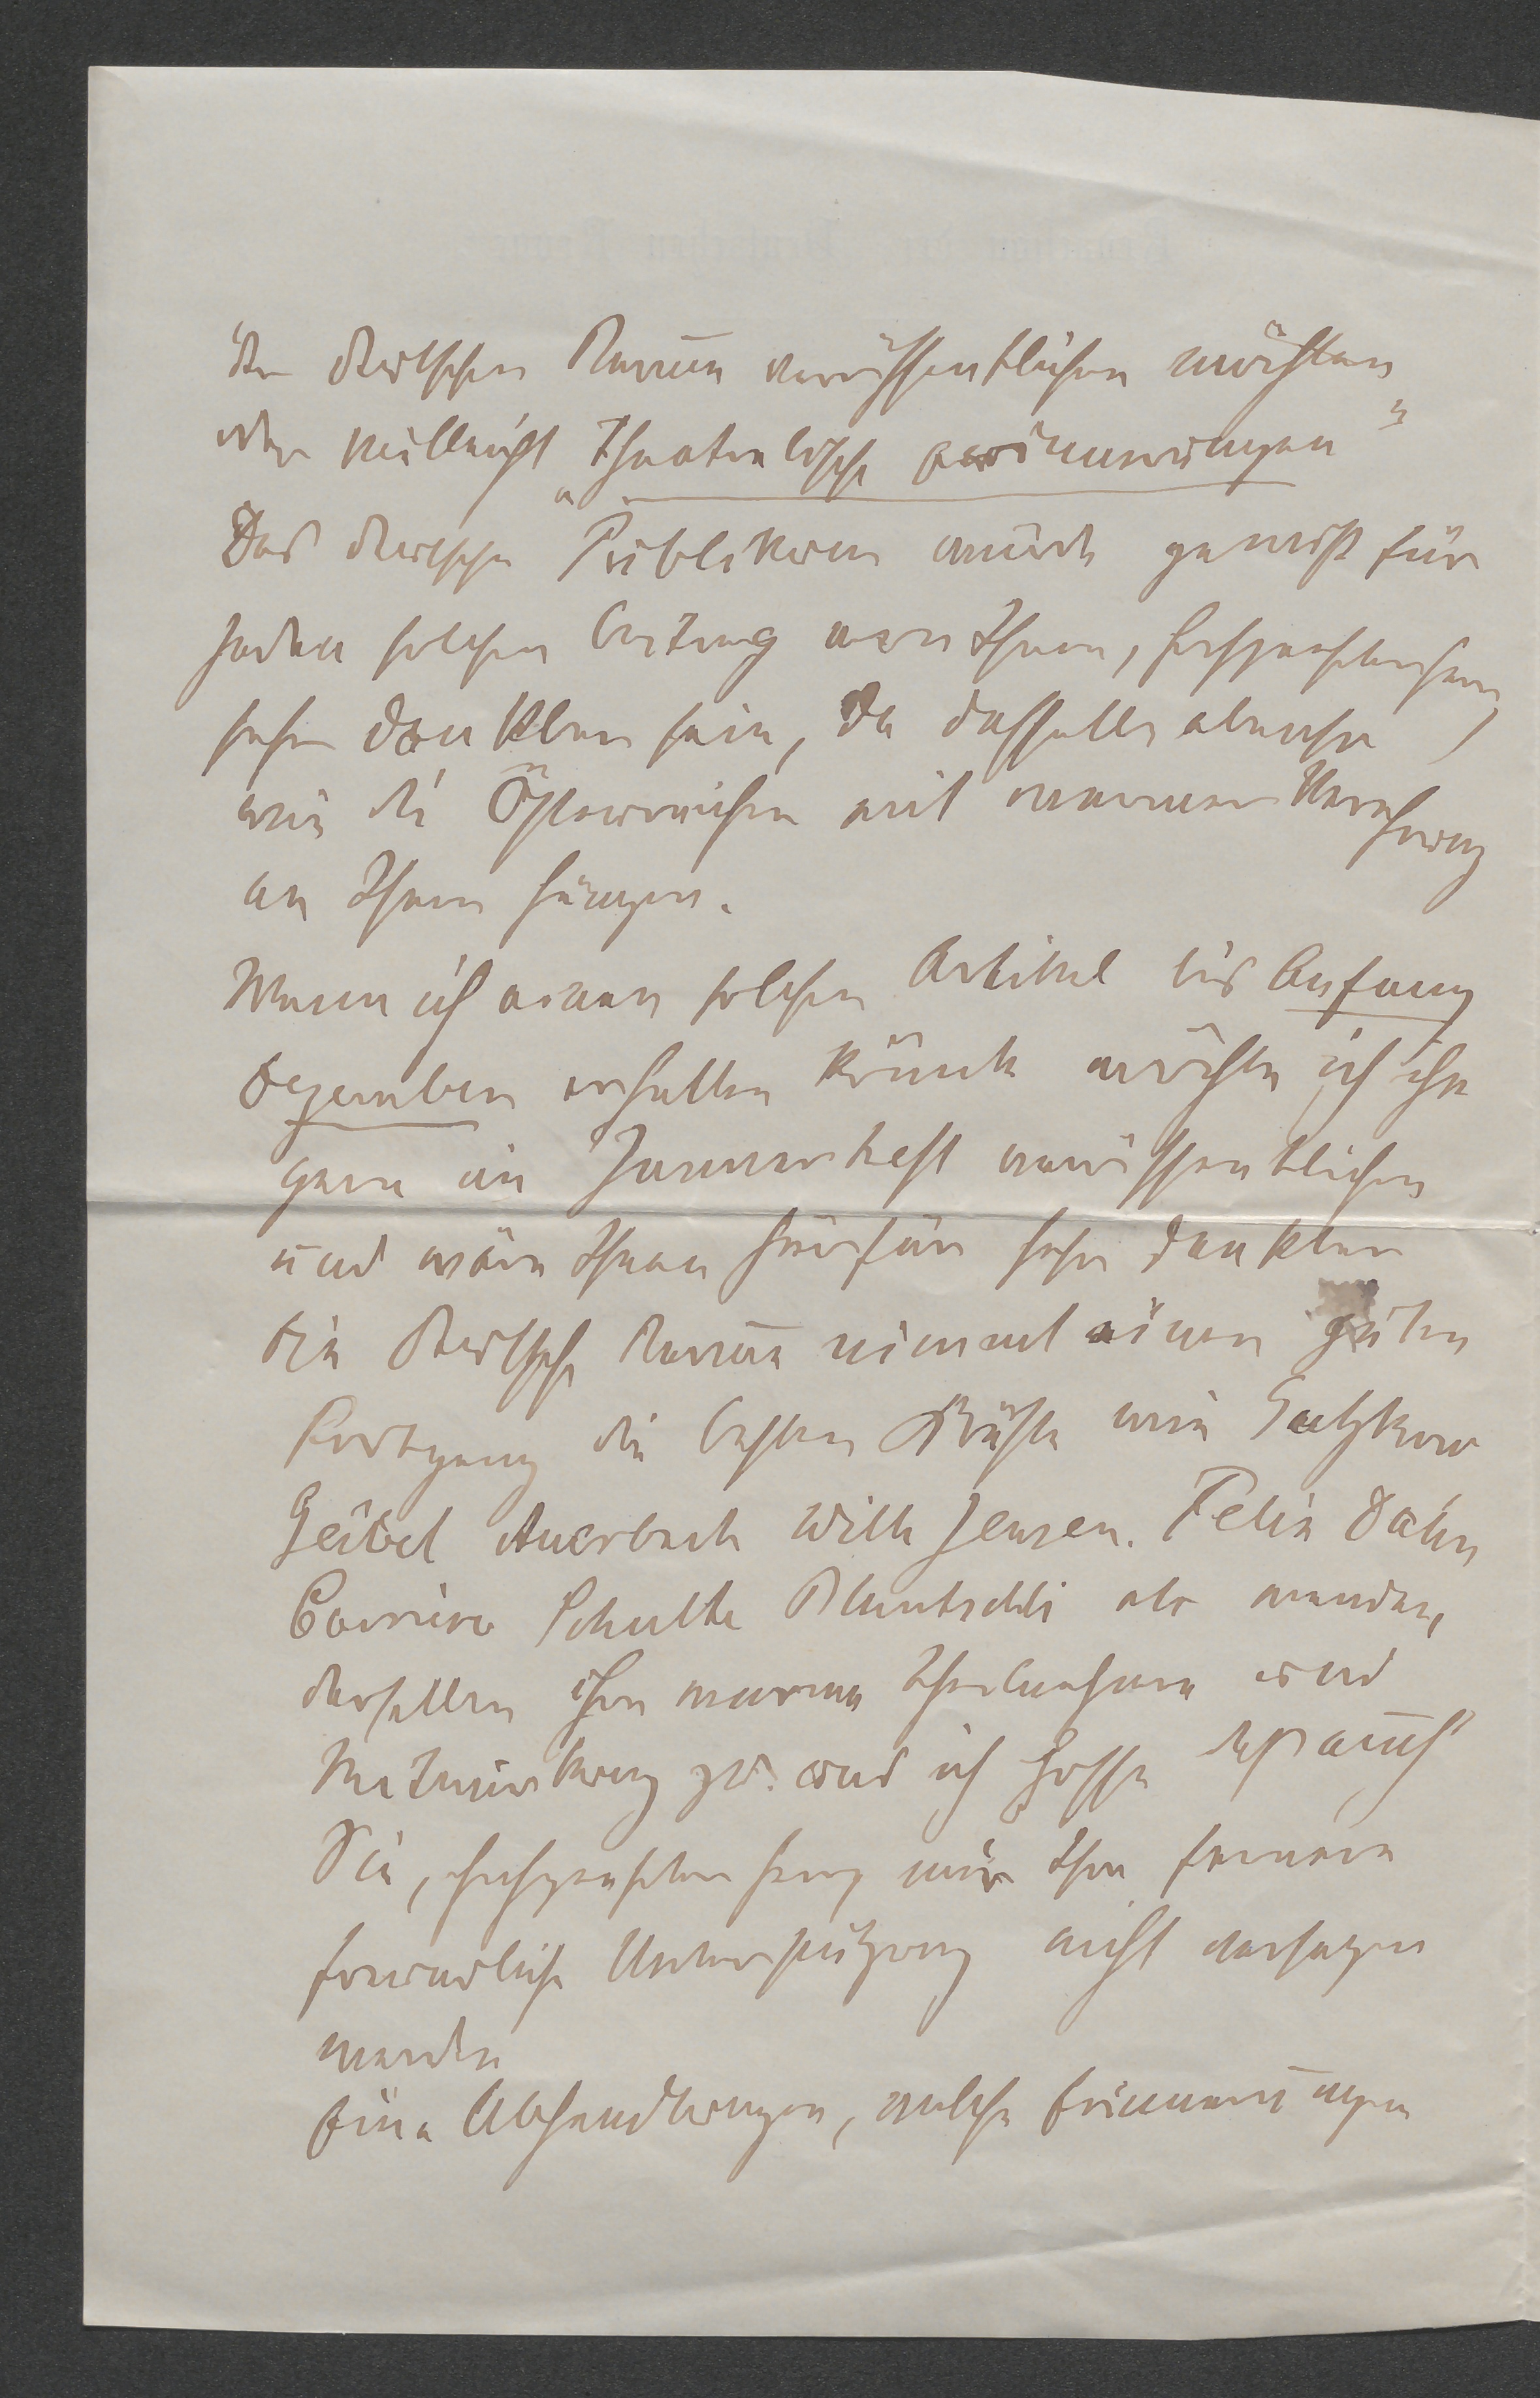 der deutschen Revue veröffentlichen möchten
oder vielleicht „Theatralische Erinnerungen“
Das deutsche Publikum würde gewiß für
jeden solchen Beitrag von Ihnen, hochgeehrter Herr,
sehr dankbar sein, da dasselbe ebenso
wie die Österreicher mit warmer Verehrung
an Ihnen hängen.
Wenn ich einen solchen Artikel bis Anfang
Dezember erhalten könnte möchte ich ihn
gern im Januarheft veröffentlichen
und wäre Ihnen hierfür sehr dankbar
Die deutsche Revue nimmt einen guten
Fortgang die besten Kräfte wie Gutzkow
Geibel Auerbach Wilh Jensen. Felix Dahn
Carriere Schulte Bluntschli etc wenden
derselben ihre warme Theilnahme und
Mitwirkung zu. und ich hoffe daß auch
Sie, hochgeehrter Herr, mir Ihre fernere
freundliche Unterstützung nicht versagen
werden
Eine Abhandlungen, welche Erinnerungen